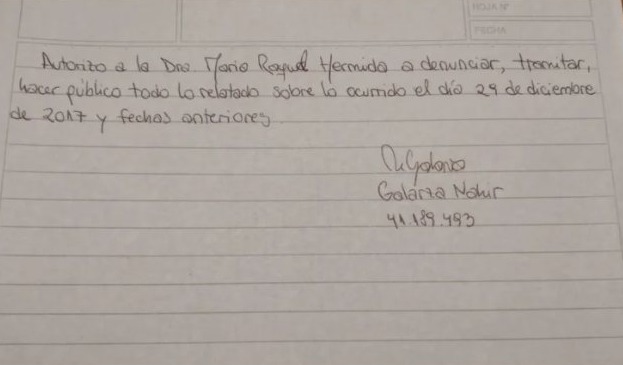 HOJA Nº
FECHA
Autorizo a la Dra Maria Raquel Hermida a denunciar, tramitar,
hacer público todo lo relatado sobre lo ocurrido el día 29 de diciembre
de 2017 y fechas anteriores
Galarza
Galarza Nahir
41.189.493